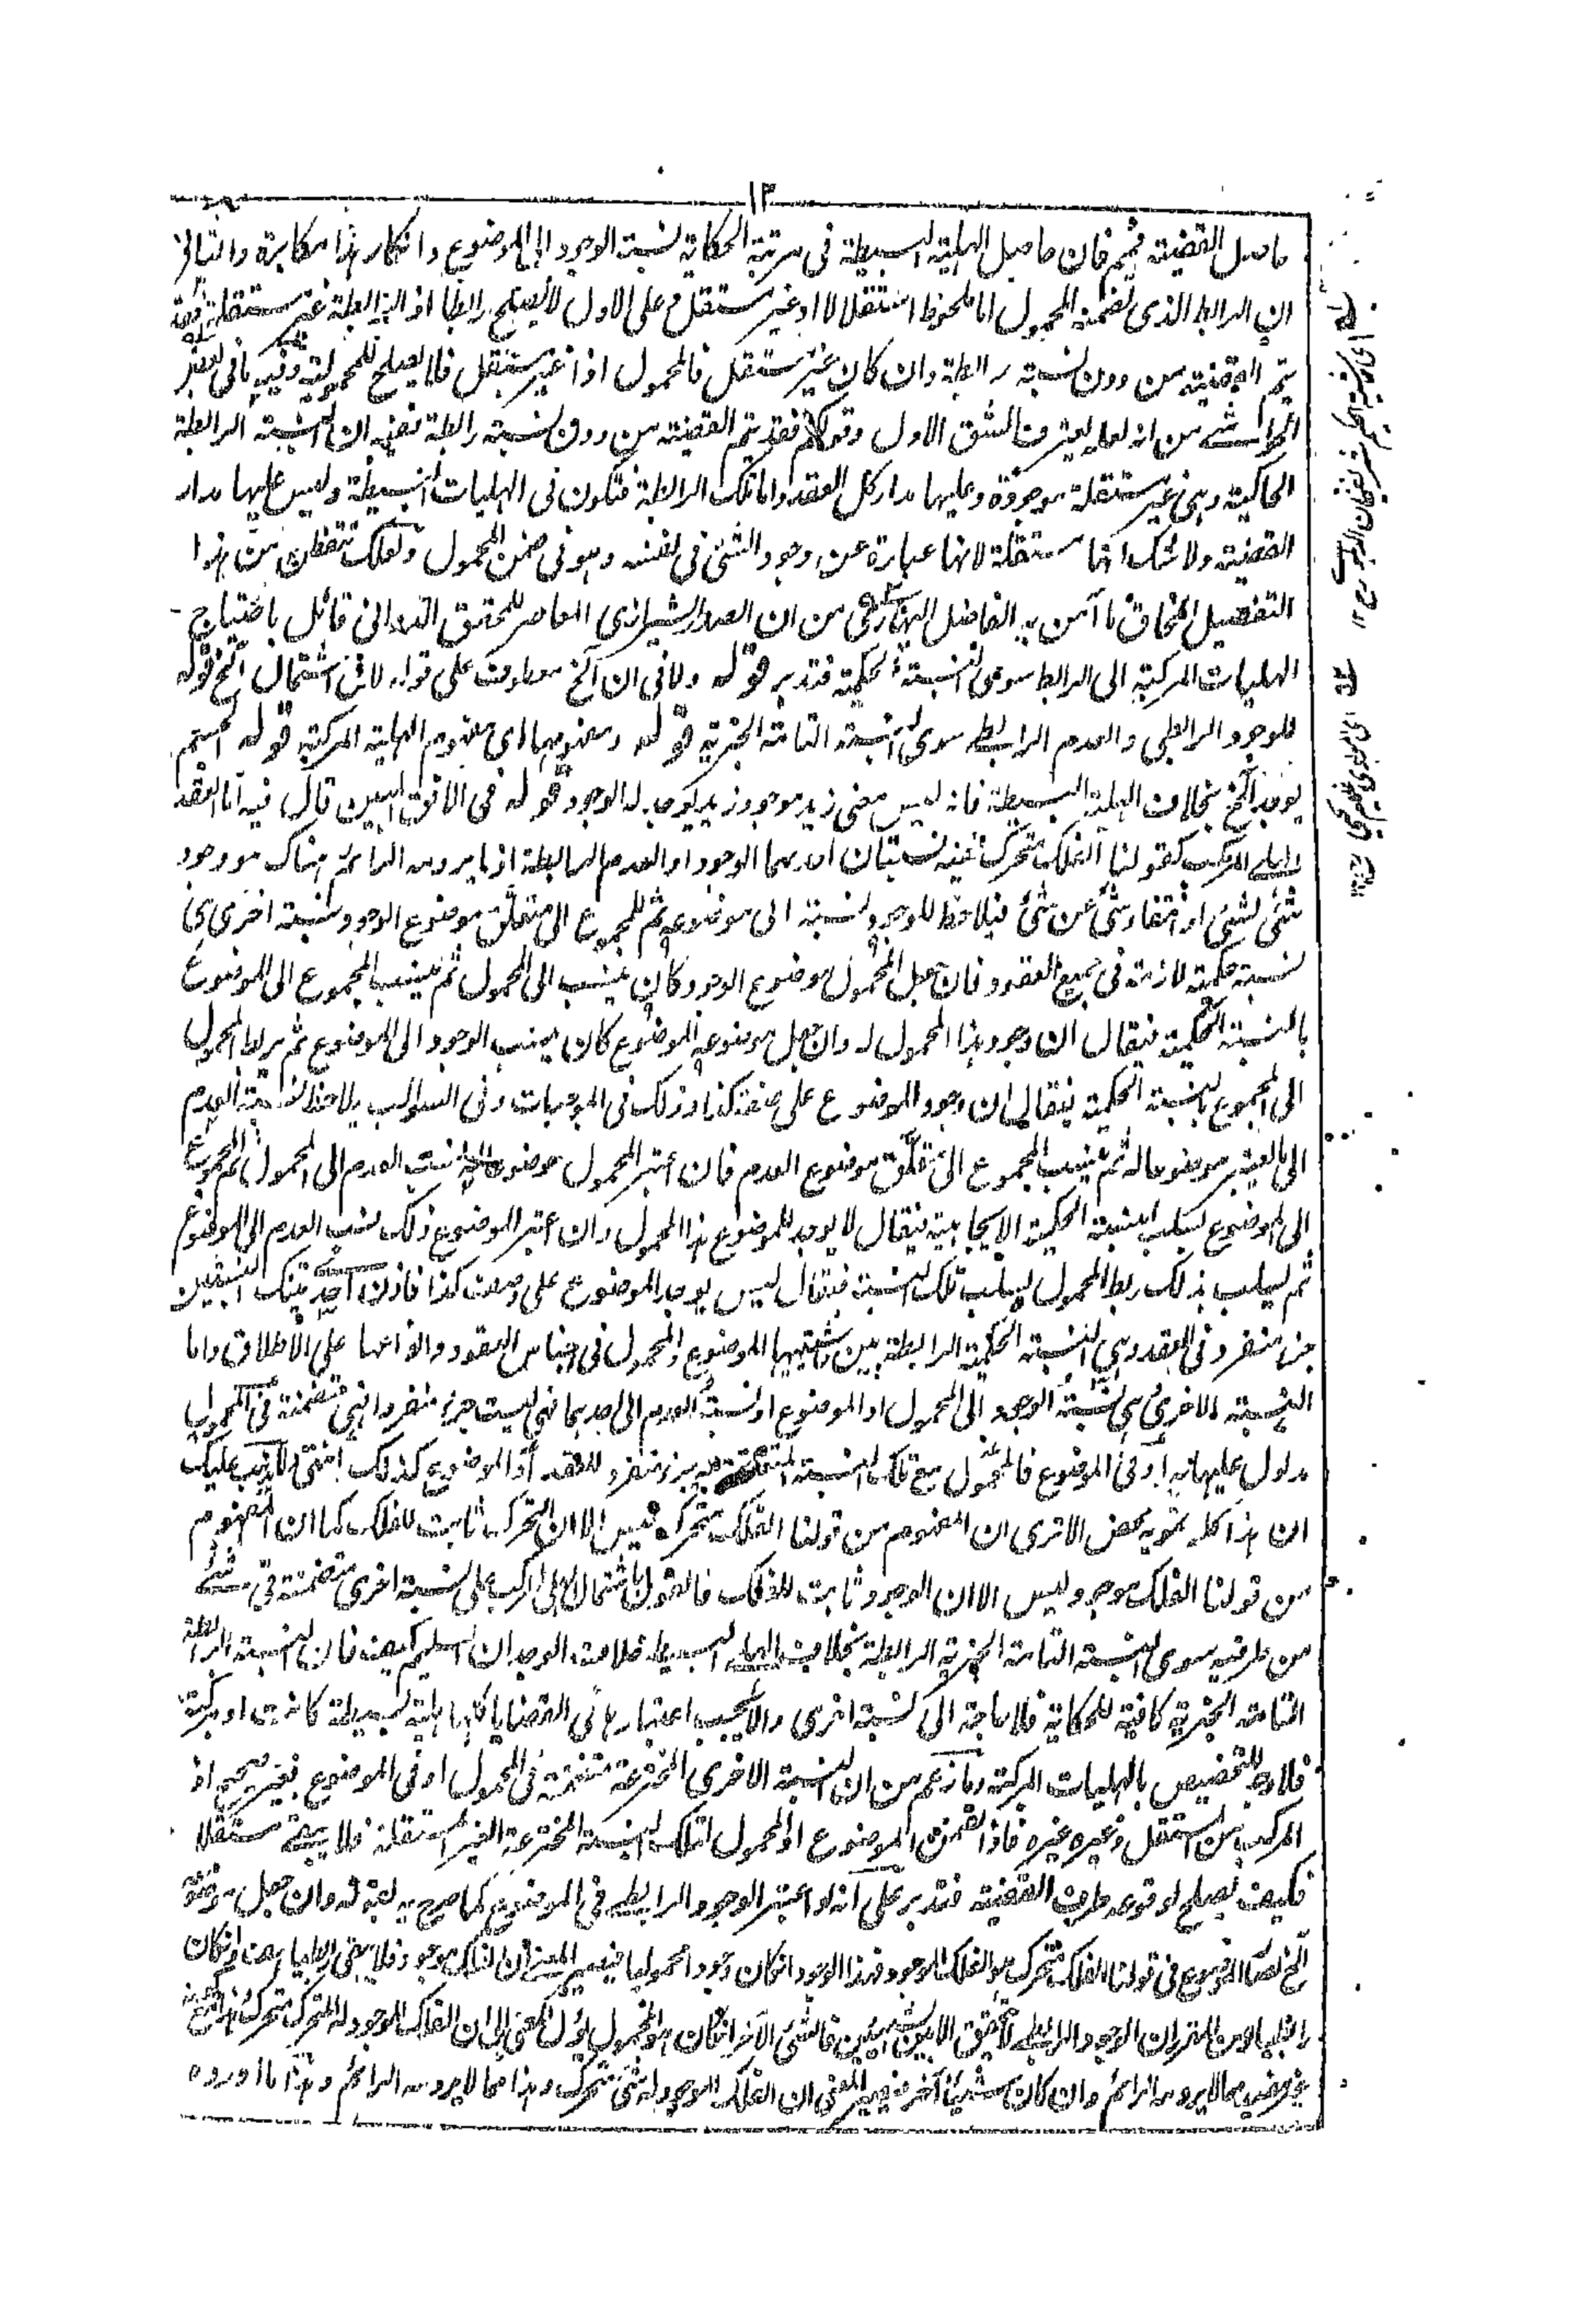 ١٣
حاصل القضية فمم فان حاصل الهلية البسيطة فى مرتبة الحكاية نسبة الوجود الى الموضوع وانكار هذا مكابرة والثانى
ان الرابط الذى تضمنه المحمول اما ملحوظ استقلالا او غير مستقل على الاول لا يصلح رابطا اذ الرابطة غير مستقلة فقد
يتم القضية من دون نسبة رابطة وان كان غير مستقل فالمحمول اذا غير مستقل فلا يصلح للمحمولية وفيه ما فى بعض
الحواشى من انه لعله يعترف الشق الاول وقولكم فقد يتم القضية من دون نسبة رابطة ففيه ان النسبة الرابطة
الحاكية وهى غير مستقلة موجودة وعليها مدار كل العقد واما تلك الرابطة فتكون فى الهليات البسيطة وليس عليها مدار
القضية ولا شك انها مستقلة لانها عبارة عن وجود الشئ فى نفسه وهو فى ضمن المحمول ولعلك تتفطن من هذا
التفصيل سخافة ما آمن به الفاضل البهارى من ان الصدر الشيرازى المعاصر للمحقق الدوانى قائل باحتياج
الهليات المركبة الى الرابط سوى النسبة الحكمية فتدبر قوله ولا فى ان الخ معطوف على قوله لا فى اشتمال الخ قوله
للوجود الرابطى والعدم الرابطى سوى النسبة التامة الخبرية قوله ومفهومها اى مفهوم الهلية المركبة قوله الجسم
يوجد الخ بخلاف الهلية البسيطة فانه ليس معنى زيد موجود زيد يوجد له الوجود قوله فى الافق المبين قال فيه اما العقد
الهلى المركب كقولنا الفلك متحرك ففيه نسبتان احديهما الوجود او العدم الرابطة اذ ما يرومه الرائم هناك هو وجود
شئ لشئ او انتفاء شئ عن شئ فيلاحظ للوجود نسبة الى موضوعه ثم للمجموع الى متعلق موضوع الوجود نسبة اخرى هى
نسبة حكمية لازمة فى جميع العقود فان جعل المحمول موضوع الوجود كان ينسب الى المحمول ثم ينسب المجموع الى الموضوع
بالنسبة الحكمية فيقال ان وجود هذا المحمول له وان جعل موضوعه الموضوع كان ينسب الوجود الى الموضوع ثم يربط المحمول
الى المجموع بالنسبة الحكمية فيقال ان وجود الموضوع على صفة كذا وذلك فى الموجبات وفى السوالب يلاحظ نسبة العدم
الى ما اعتبر موضوعا له ثم ينسب المجموع الى متعلق موضوع العدم فان اعتبر المحمول موضوعا له نسب العدم الى المحمول ثم المجموع
الى الموضوع بسلب النسبة الحكمية الايجابية فيقال لا يوجد للموضوع هذا المحمول وان اعتبر الموضوع ذلك نسب العدم الى الموضوع
ثم يسلب بذلك ربط المحمول بسلب تلك النسبة فيقال ليس يوجد الموضوع على وصف كذا فاذن احدى تينك النسبتين
جزء منفرد فى العقد وهى النسبة الحكمية الرابطة بين حاشيتيها الموضوع والمحمول فى اجناس العقود وانواعها على الاطلاق واما
النسبة الاخرى هى نسبة الوجود الى المحمول او الموضوع او نسبة العدم الى احدهما فهى ليست جزء منفردا بل هى متضمنة فى المحمول
مدلول عليها به او فى الموضوع فالمحمول مع تلك النسبة المتضمنة فيه جزء منفرد للعقد او الموضوع كذلك انتهى لا يذهب عليك
ان هذا كله تمويه محض الا ترى ان المفهوم من قولنا الفلك متحرك ليس الا ان التحرك ثابت للفلك كما ان المفهوم
من قولنا الفلك موجود ليس الا ان الوجود ثابت للفلك فالقول باشتمال الهلى المركب على نسبة اخرى متضمنة فى شئ
من طرفيه سوى النسبة التامة الخبرية الرابطة بخلاف الهلى البسيط خلاف الوجدان السليم كيف فان النسبة الرابطة
التامة الخبرية كافية للحكاية فلا حاجة الى نسبة اخرى والا يجب اعتبارها فى القضايا كلها هلية بسيطة كانت او مركبة
فلا وجه للتخصيص بالهليات المركبة وما زعم من ان النسبة الاخرى المخترعة متضمنة فى المحمول او فى الموضوع فغير صحيح اذ
المركب من المستقل وغيره غيره فاذا تضمن الموضوع او المحمول لتلك النسبة المخترعة الغير المستقلة فلا يبقى مستقلا
فكيف يصلح لوقوعه طرف القضية فتدبر على انه لو اعتبر الوجود الرابطى فى الموضوع كما صرح به بقوله وان جعل موضوعه
الخ لكان الموضوع فى قولنا الفلك متحرك هو الفلك الموجود فهذا الوجود ان كان وجودا محموليا فيصير المعنى ان الفلك موجود فلا يبقى رابطيا وان كان
رابطيا ومن المقرر ان الوجود الرابطى لا يتحقق الا بين الشيئين فالشئ الآخر ان كان هو المحمول يؤل المعنى الى ان الفلك الموجود له التحرك متحرك
مما لا يرومه الرائم وان كان شيئا آخر فيصير المعنى ان الفلك الموجود له شئ متحرك وهذا مما لا يرومه الرائم وهذا ما اورده